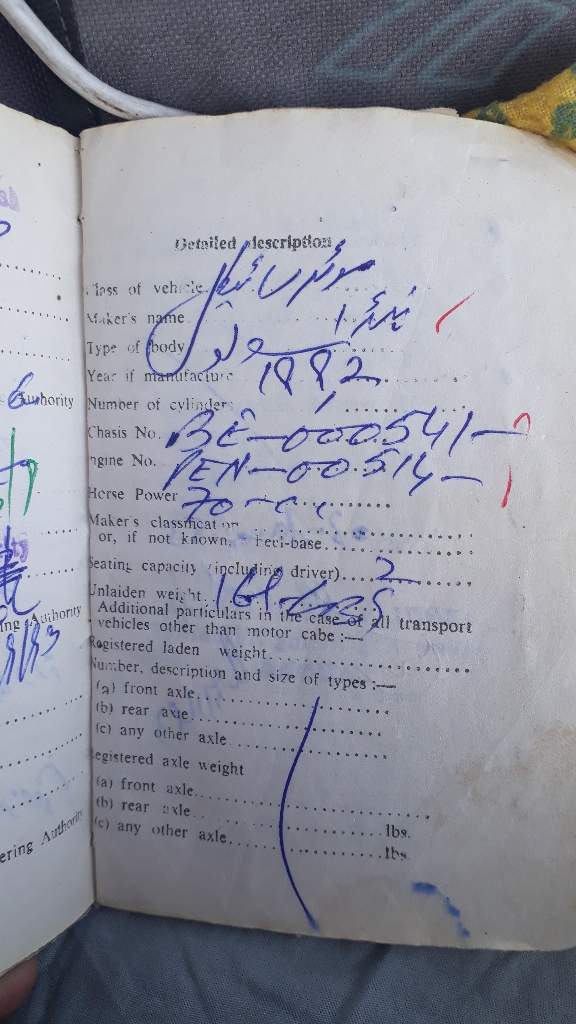 Detailed description
Class of vehicle موٹر سائیکل
Maker's name
Type of body
Year if manufacture 1992
Number of cylinder 1
Chasis No. BE-000541-
Engine No. PEN-00514-
Horse Power 70-c.c.
Maker's classification
or, if not known, heel-base
Seating capacity (including driver) 2
Unlaiden weight
Additional particulars in the case of all transport
vehicles other than motor cabe :—
Registered laden weight
Number, description and size of types :—
(a) front axle
(b) rear axle
(c) any other axle
Registered axle weight
(a) front axle
(b) rear axle lbs.
(c) any other axle lbs
Authority
Authority
ering Authority